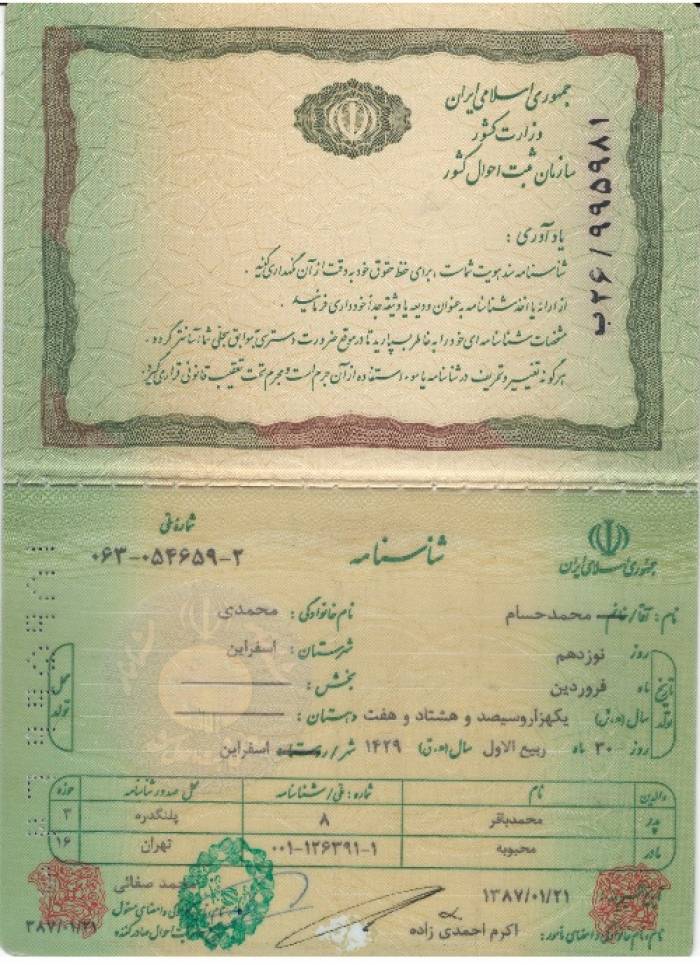 جمهوری اسلامی ایران
وزارت کشور
سازمان ثبت احوال کشور
ب۲۶/۹۹۵۹۸۱
یادآوری :
شناسنامه سند هویت شماست، برای حفظ حقوق خود به دقت از آن نگهداری کنید .
از ارائه یا اخذ شناسنامه به عنوان ودیعه یا وثیقه جداً خودداری فرمائید .
مشخصات شناسنامه ای خود را به خاطر بسپارید تا در موقع ضرورت دسترسی به سوابق سجلی شما آسانتر گردد .
هرگونه تغییر و تحریف در شناسنامه یا سوء استفاده از آن جرم است و مجرم تحت تعقیب قانونی قرار می گیرد.
جمهوری اسلامی ایران
شناسنامه
شماره ملی
۰۶۳-۰۵۴۶۵۹-۲
نام : آقا/خانم محمدحسام نام خانوادگی : محمدی
تاریخ تولد
روز نوزدهم
ماه فروردین
سال (ه.ش) یکهزاروسیصد و هشتاد و هفت
روز ۳۰ ماه ربیع الاول سال (ه.ق) ۱۴۲۹
محل تولد
شهرستان : اسفراین
بخش :
دهستان :
شهر/روستا اسفراین
والدین نام شماره : ملی/شناسنامه محل صدور شناسنامه حوزه
پدر محمدباقر ۸ پلنگدره ۳
مادر محبوبه ۰۰۱-۱۲۶۳۹۱-۱ تهران ۱۶
۱۳۸۷/۰۱/۲۱
محمد صفائی
نام، نام خانوادگی و امضای مأمور : اکرم احمدی زاده
۱۳۸۷/۰۱/۲۱